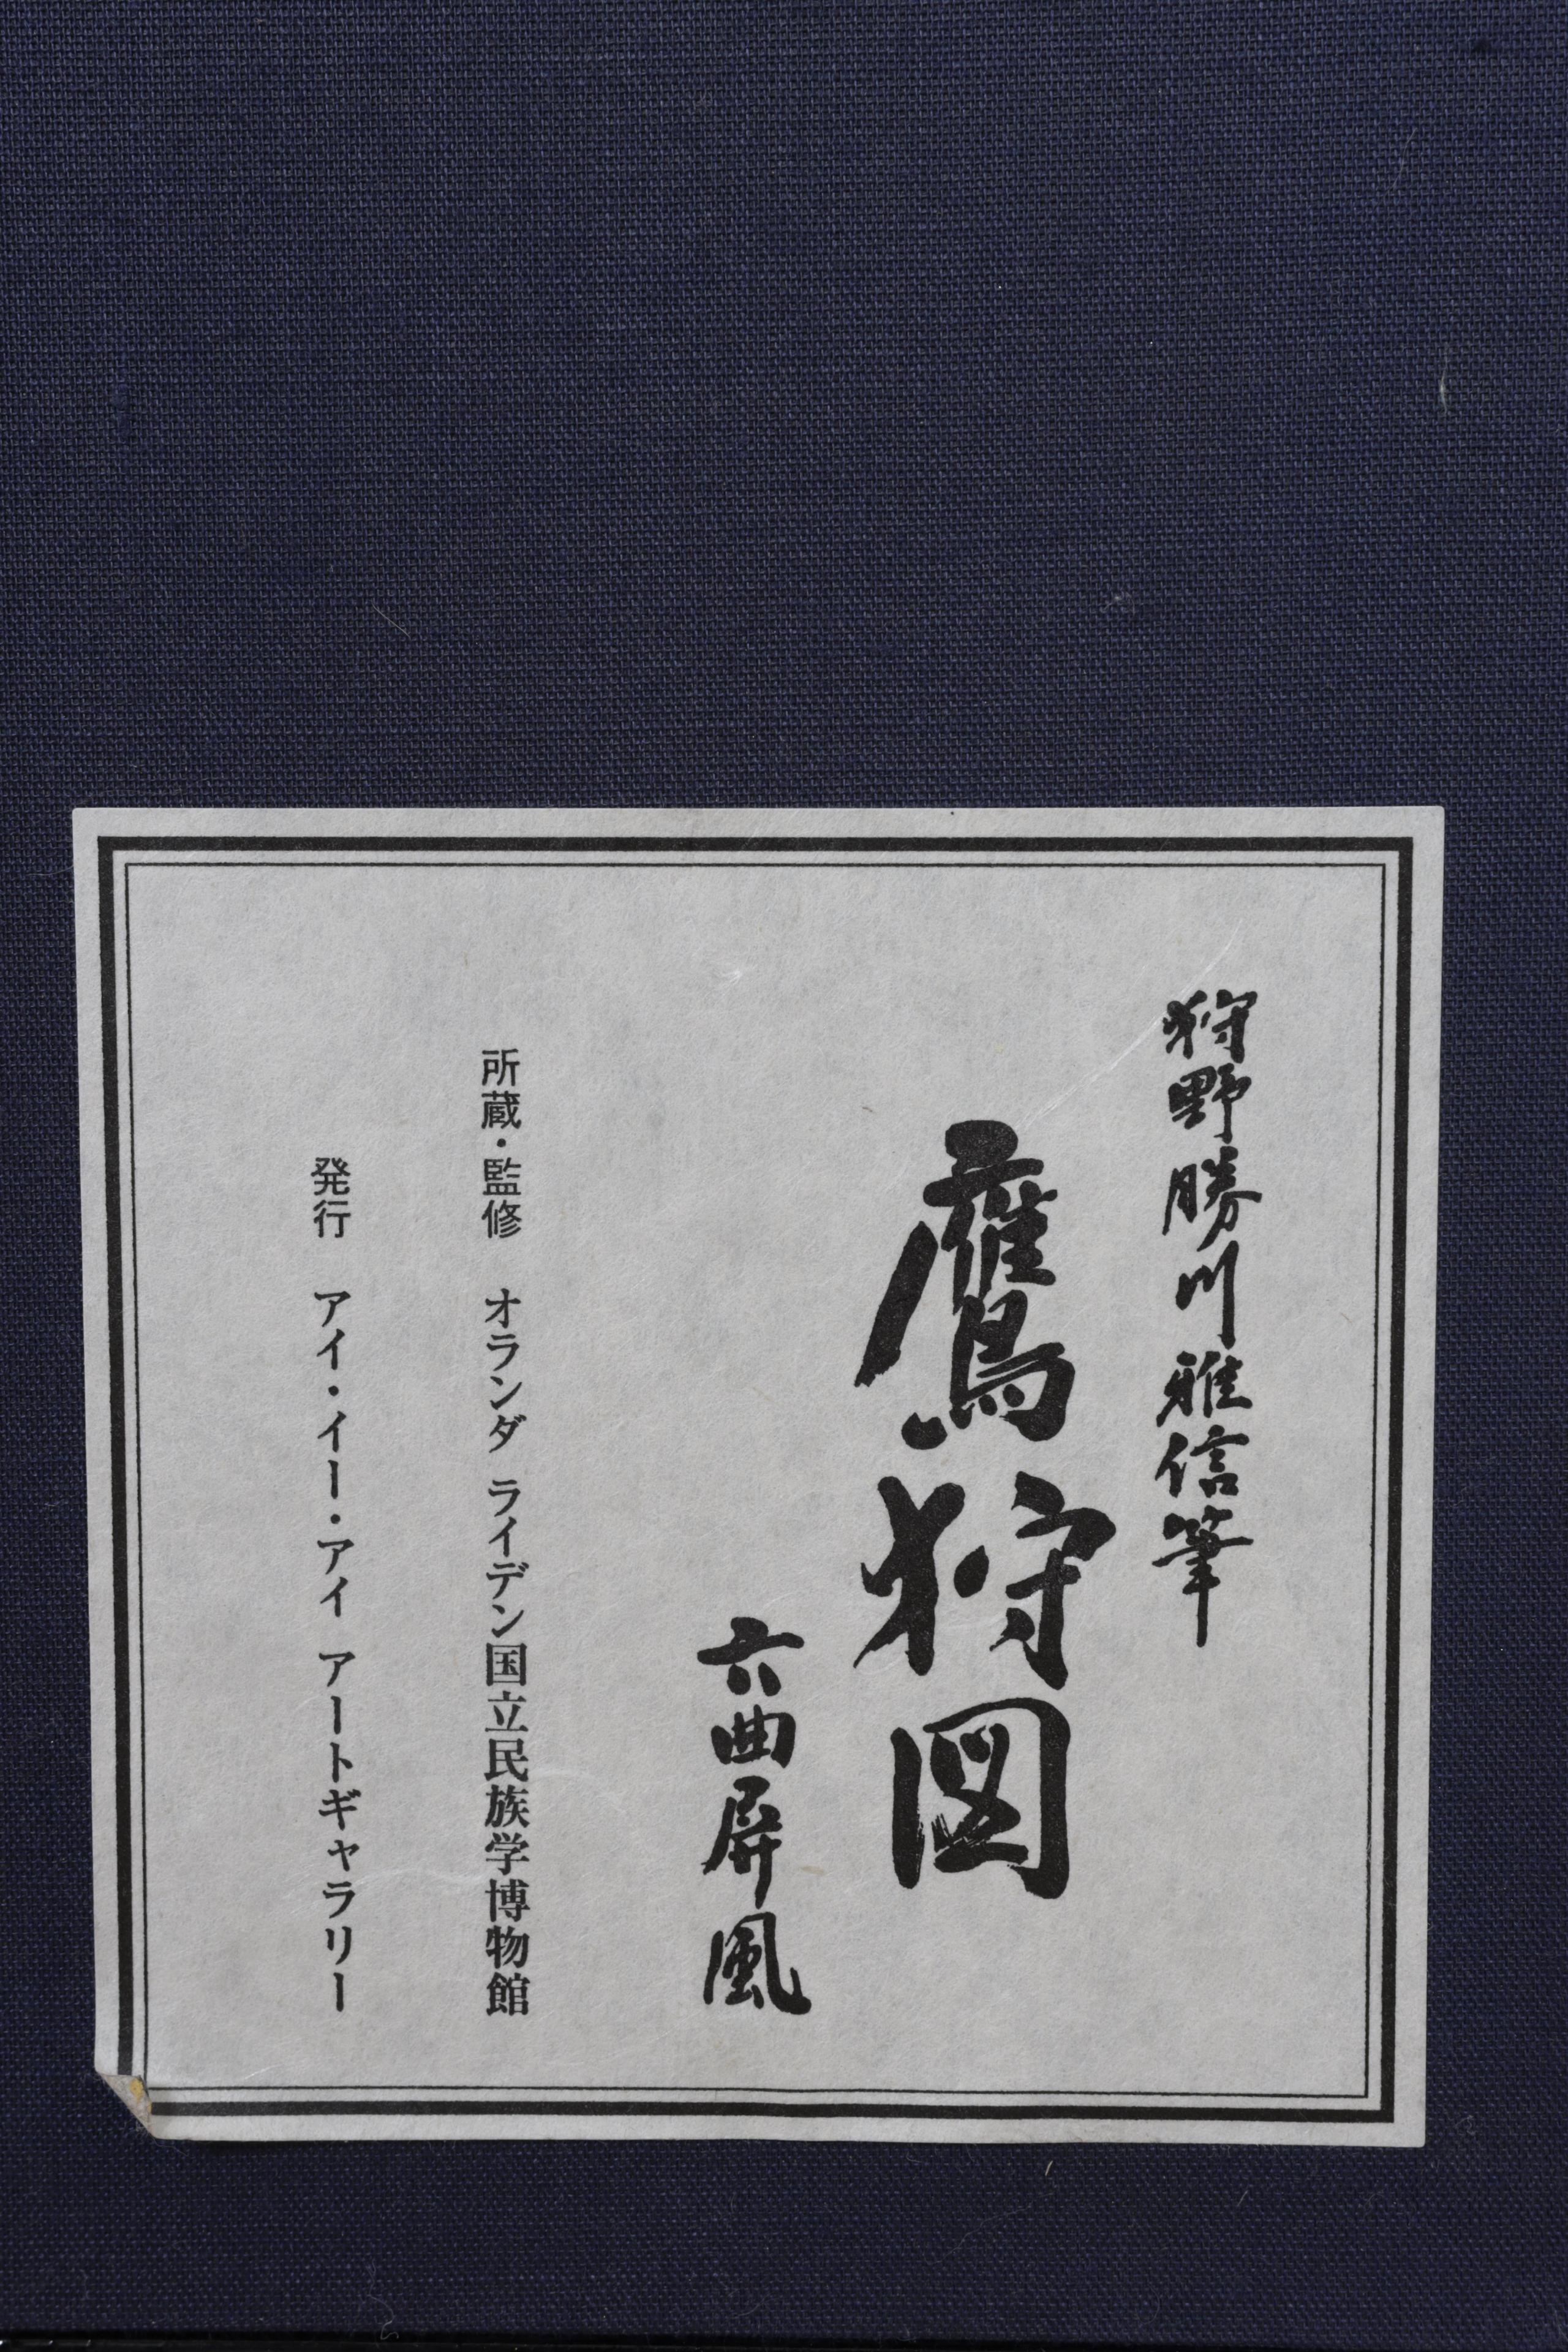 狩野勝川雅信筆
鷹狩図
六曲屏風
所蔵・監修　オランダ ライデン国立民族学博物館
発行　アイ・イー・アイ アートギャラリー